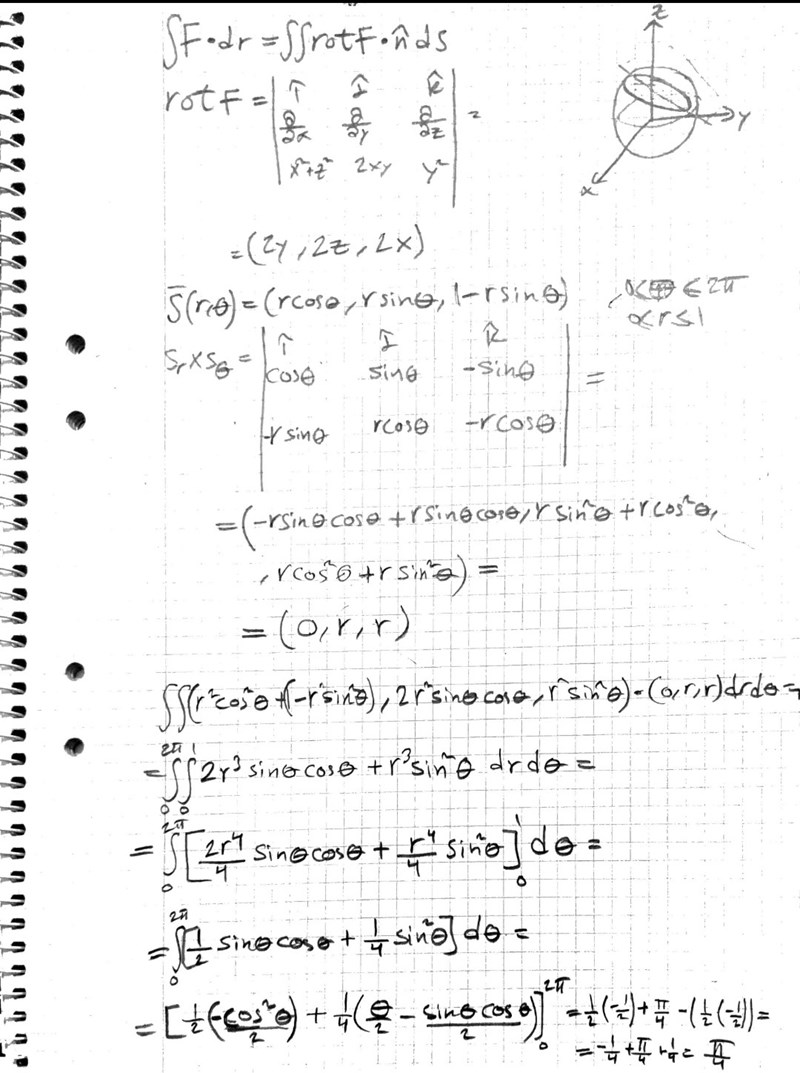 ∫F·dr = ∬rotF·n̂ dS
rotF = | î ĵ k̂ |
| ∂/∂x ∂/∂y ∂/∂z | =
| x²+z² 2xy y² |
z
y
x
= (2y, 2z, 2x)
S̄(r,θ) = (rcosθ, rsinθ, 1-rsinθ) , 0<θ≤2π
0<r≤1
Sr×Sθ = | î ĵ k̂ |
| cosθ sinθ -sinθ | =
| -rsinθ rcosθ -rcosθ |
= (-rsinθcosθ + rsinθcosθ, rsin²θ + rcos²θ,
, rcos²θ + rsin²θ) =
= (0, r, r)
∬(r²cos²θ + (-r²sin²θ), 2r²sinθcosθ, r²sin²θ)·(0,r,r)drdθ =
= ∫₀^2π ∫₀^1 2r³sinθcosθ + r³sin²θ drdθ =
= ∫₀^2π [2r⁴/4 sinθcosθ + r⁴/4 sin²θ]₀^1 dθ =
= ∫₀^2π [1/2 sinθcosθ + 1/4 sin²θ] dθ =
= [1/2(-cos²θ/2) + 1/4(θ/2 - sinθcosθ/2)]₀^2π = 1/2(-1/2) + π/4 - (1/2(-1/2)) =
= -1/4 + π/4 + 1/4 = π/4